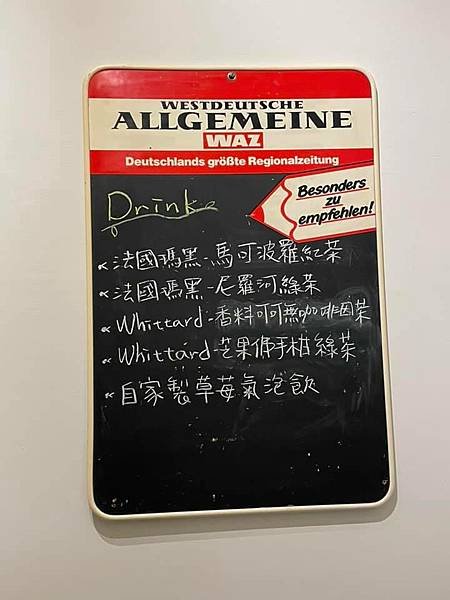 WESTDEUTSCHE
ALLGEMEINE
WAZ
Deutschlands größte Regionalzeitung
Besonders
zu
empfehlen!
Drink
法國瑪黑-馬可波羅紅茶
法國瑪黑-尼羅河綠茶
Whittard-香料可可無咖啡因茶
Whittard-芒果佛手柑綠茶
自家製草莓氣泡飲